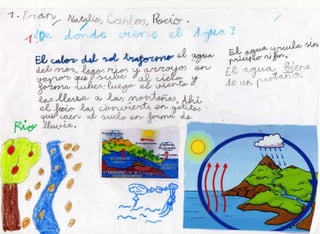 1. Fran, Natalia, Carlos, Rocío.
1 ¿De dónde viene el Agua?
El calor del sol trasforma el agua
del mar, lagos, ríos y arroyos en
vapor que sube al cielo y
forma nubes: luego el viento
las lleva a las montañas. Ahí
el frío las convierte en gotitas
que caen al suelo en forma de
lluvia.
El agua circula sin
principio ni fin.
El agua viene
de un pantano.
Río